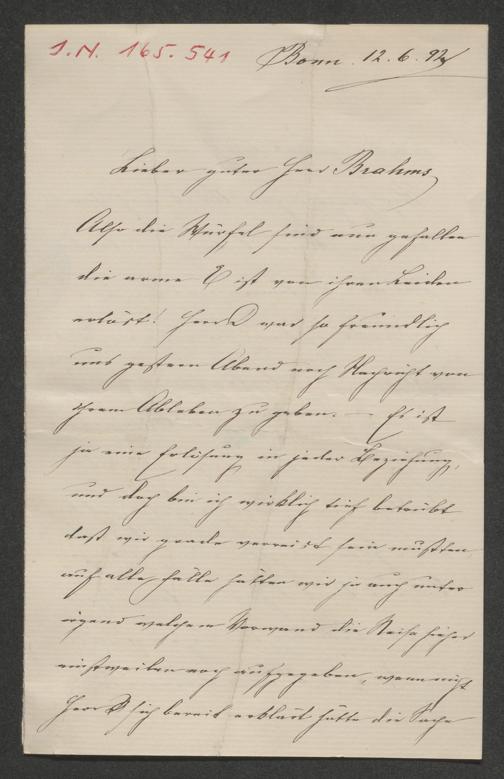 I.N. 165.541
Bonn. 12.6.92
Lieber guter Herr Brahms,
Also die Würfel sind nun gefallen
die arme E ist von ihren Leiden
erlöst! Herr D war so freundlich
uns gestern Abend noch Nachricht von
ihrem Ableben zu geben. — Es ist
ja eine Erlösung in jeder Beziehung,
und doch bin ich wirklich tief betrübt
daß wir grade verreist sein mußten
auf alle Fälle hätten wir ja auch unter
irgend welchem Vorwand die Reise hieher
einstweilen noch aufgegeben, wenn nicht
Herr D sich bereit erklärt hätte die Sache